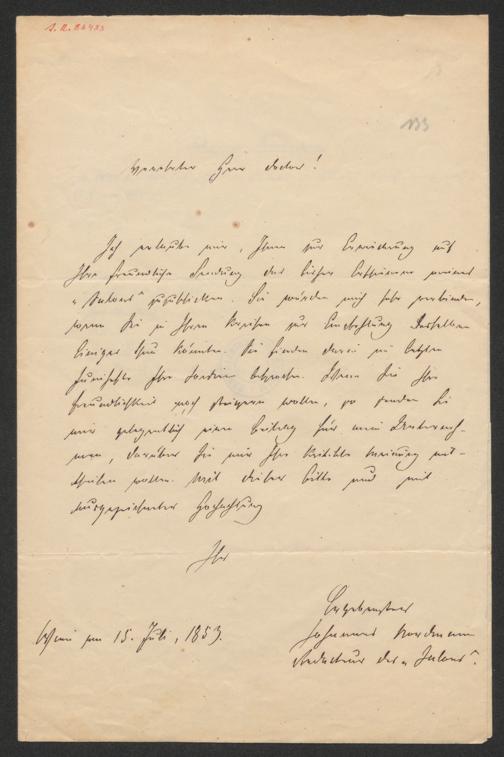 133
Verehrter Herr Doctor!
Ich erlaube mir, Ihnen zur Erwiderung auf
Ihre freundliche Sendung das bisher Erschienene meines
„Salons“ zuzuschicken. Sie würden mich sehr verbinden,
wenn Sie in Ihren Kreisen zur Empfehlung desselben
Einiges thun könnten. Sie finden darin im letzten
Junihefte Ihr besprochen. Wenn Sie Ihre
Freundlichkeit noch steigern wollen, so senden Sie
mir gelegentlich einen Beitrag für mein Unterneh-
men, darüber Sie mir Ihre Meinung mit-
theilen wollen. Mit dieser Bitte und mit
ausgezeichneter Hochachtung
Ihr
Ergebenster
Johannes Nordmann
Redacteur des „Salons“.
Wien am 15. Juli, 1853.